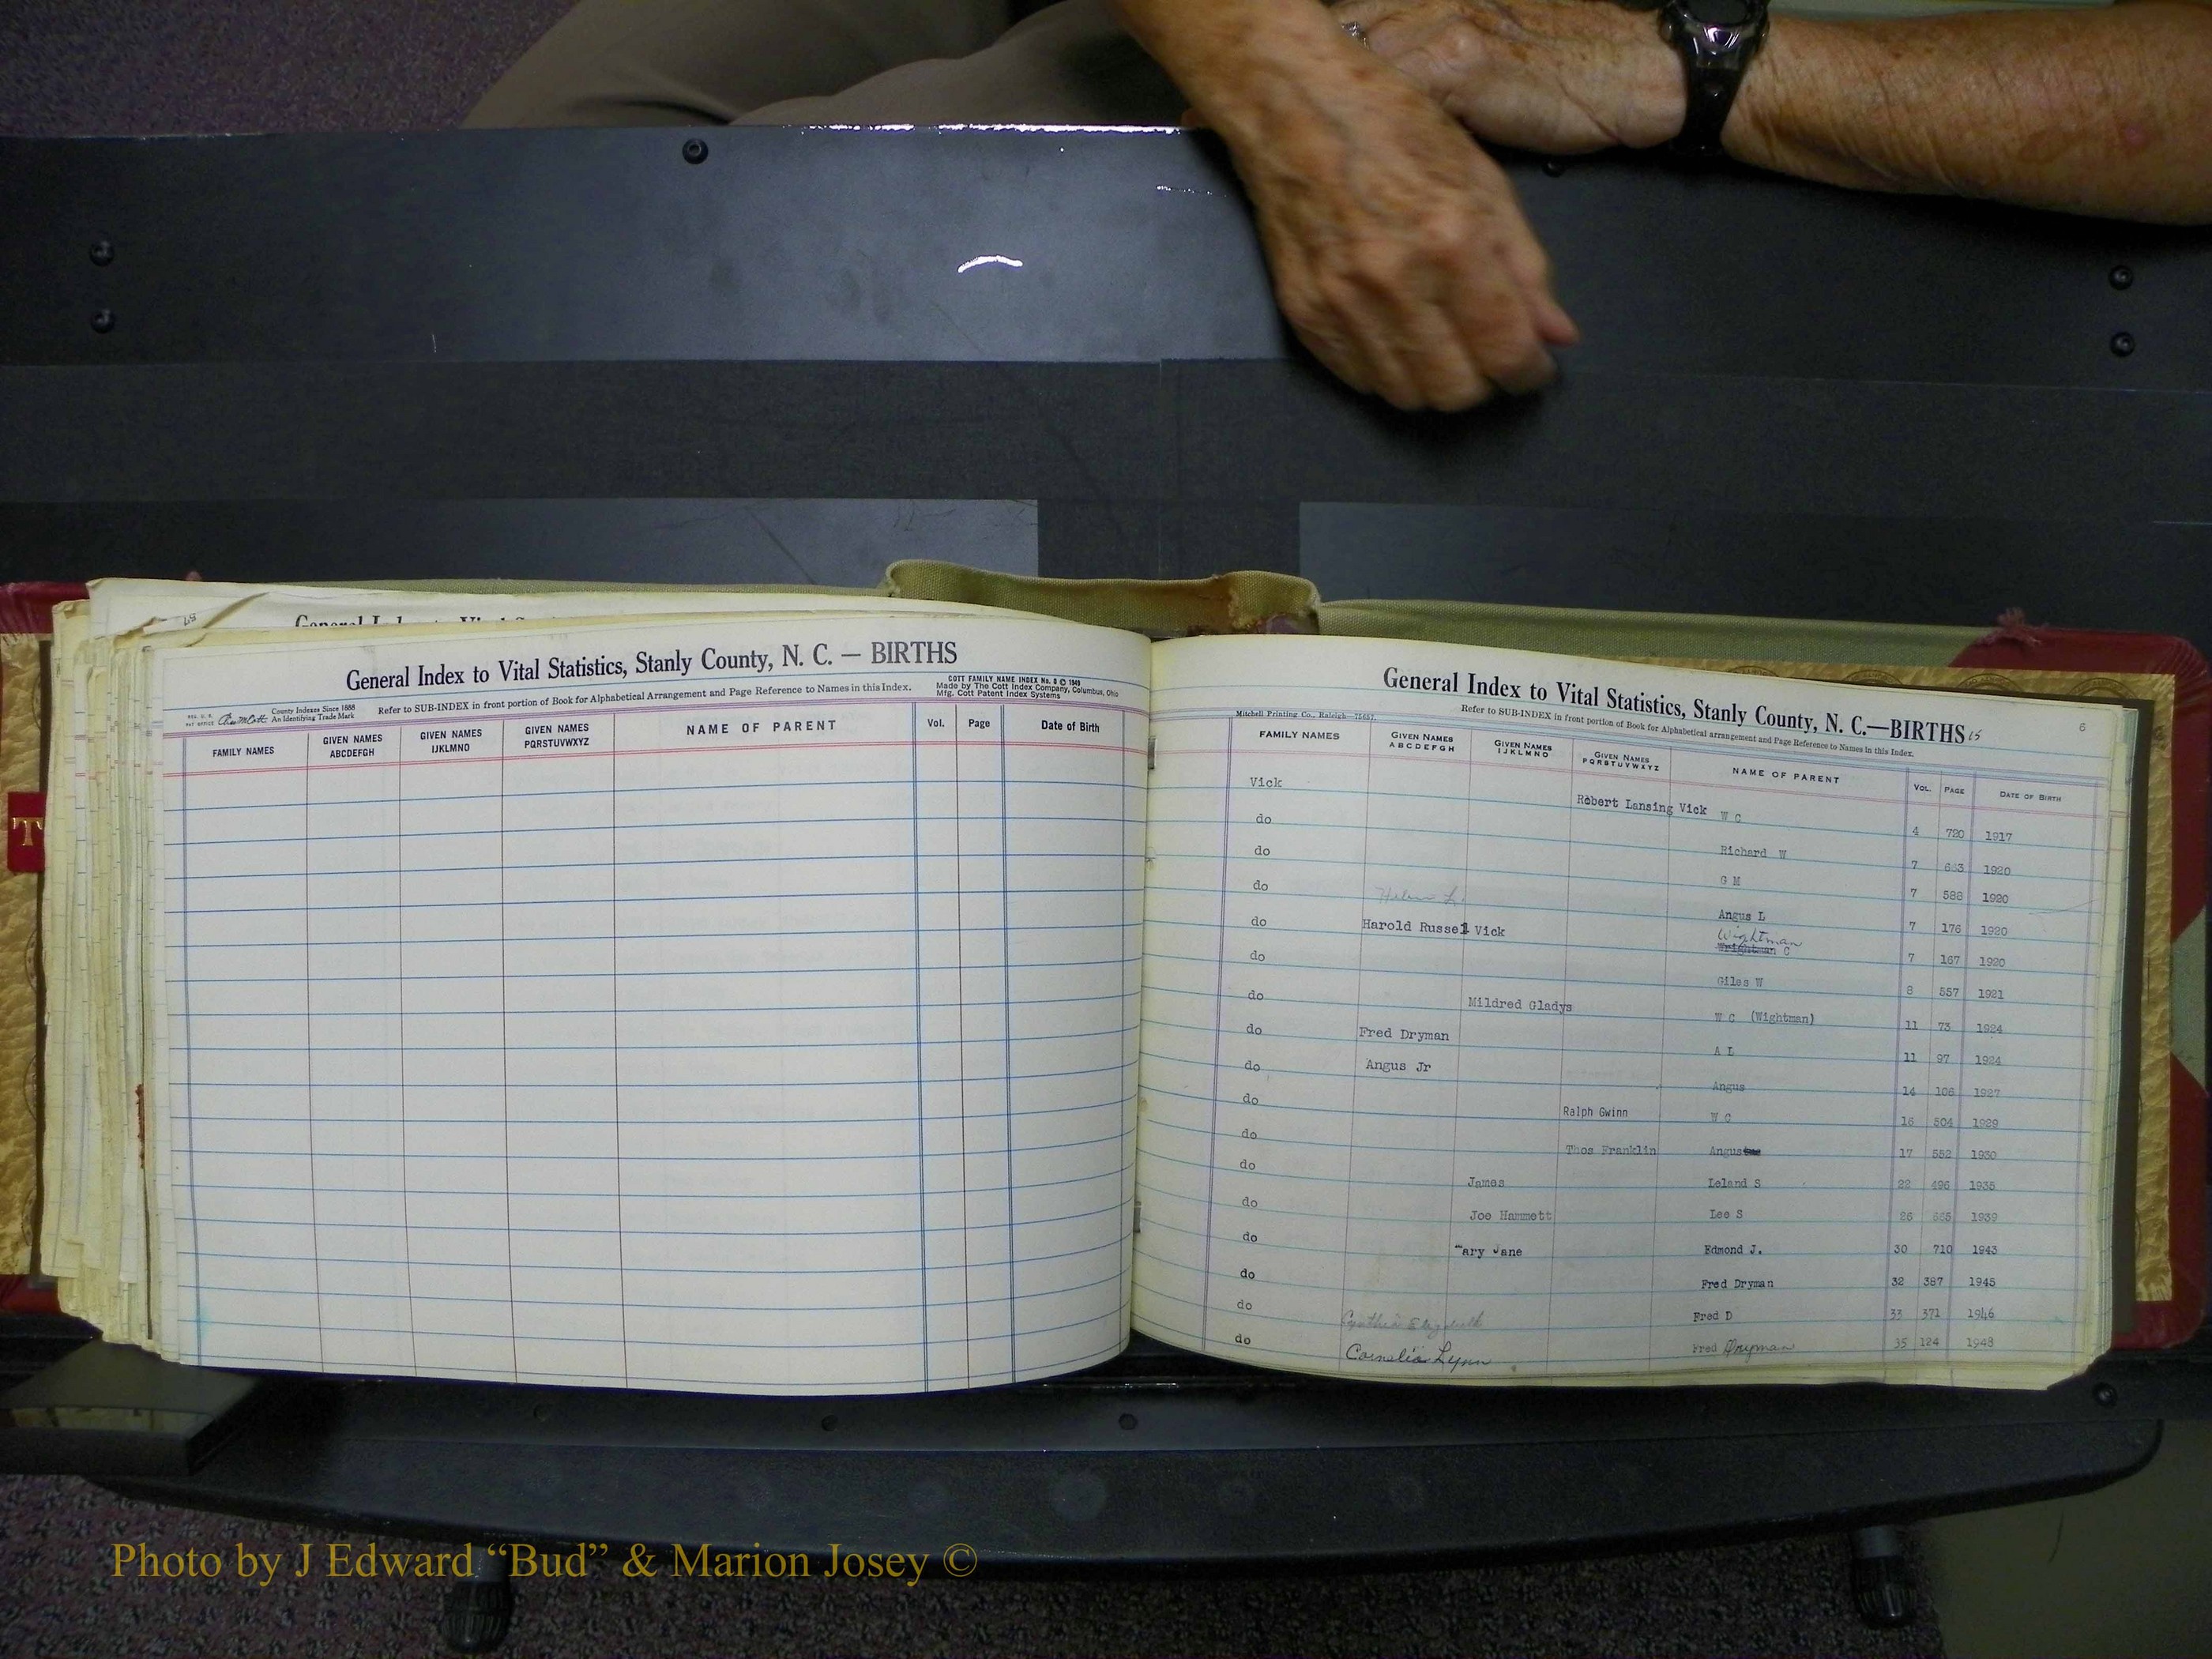 57
General Index to Vital Statistics, Stanly County, N. C. — BIRTHS
COTT FAMILY NAME INDEX No. 8 © 1949
Made by The Cott Index Company, Columbus, Ohio
Mfg. Cott Patent Index Systems
County Indexes Since 1888
An Identifying Trade Mark
Refer to SUB-INDEX in front portion of Book for Alphabetical Arrangement and Page Reference to Names in this Index.
FAMILY NAMES GIVEN NAMES ABCDEFGH GIVEN NAMES IJKLMNO GIVEN NAMES PQRSTUVWXYZ NAME OF PARENT Vol. Page Date of Birth
T
General Index to Vital Statistics, Stanly County, N. C.—BIRTHS 15
6
Mitchell Printing Co., Raleigh—75657.
Refer to SUB-INDEX in front portion of Book for Alphabetical arrangement and Page Reference to Names in this Index.
FAMILY NAMES GIVEN NAMES ABCDEFGH GIVEN NAMES IJKLMNO GIVEN NAMES PQRSTUVWXYZ NAME OF PARENT VOL. PAGE DATE OF BIRTH
Vick Robert Lansing Vick W C 4 720 1917
do Richard W 7 1920
do G M 7 588 1920
do Helen L. Angus L 7 176 1920
do Harold Russel Vick Wightman Wrightman C 7 167 1920
do Giles W 8 557 1921
do Mildred Gladys W C (Wightman) 11 73 1924
do Fred Dryman A L 11 97 1924
do Angus Jr Angus 14 106 1927
do Ralph Gwinn W C 16 504 1929
do Thos Franklin Angus 17 552 1930
do James Leland S 22 496 1935
do Joe Hammett Lee S 26 1939
do ary Jane Edmond J. 30 710 1943
do Fred Dryman 32 387 1945
do Cynthia Elizabeth Fred D 33 371 1946
do Cornelia Lynn Fred Dryman 35 124 1948
Photo by J Edward “Bud” & Marion Josey ©